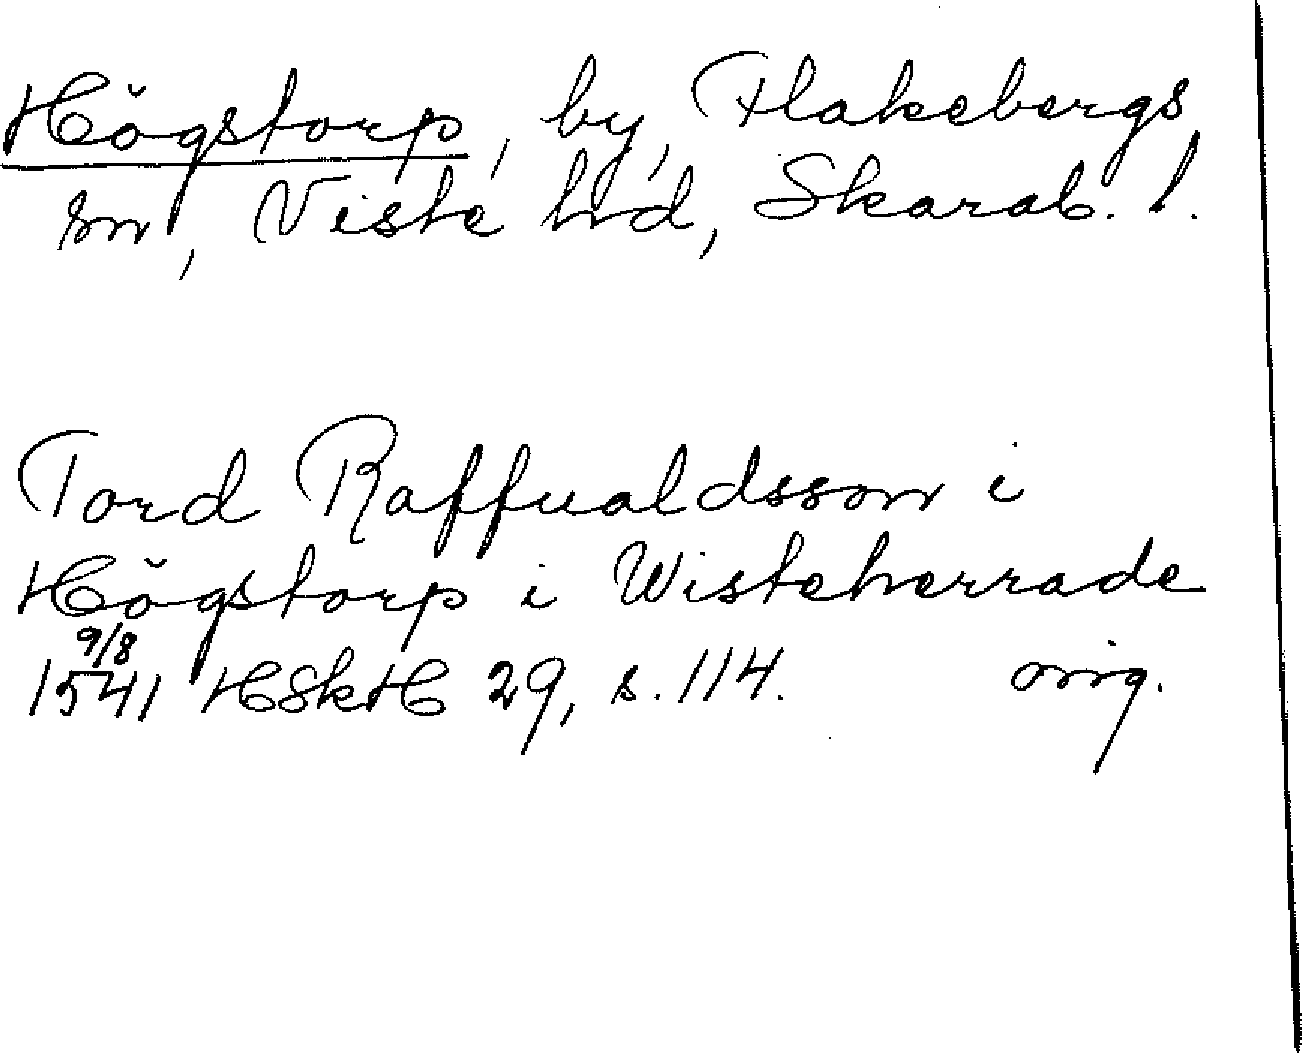 Högstorp, by, Flakebergs
sn, Viste hd, Skarab. l.
Tord Raffualdsson i
Högstorp i Wisteherrade
9/8
1541 HSkH 29, s. 114. orig.